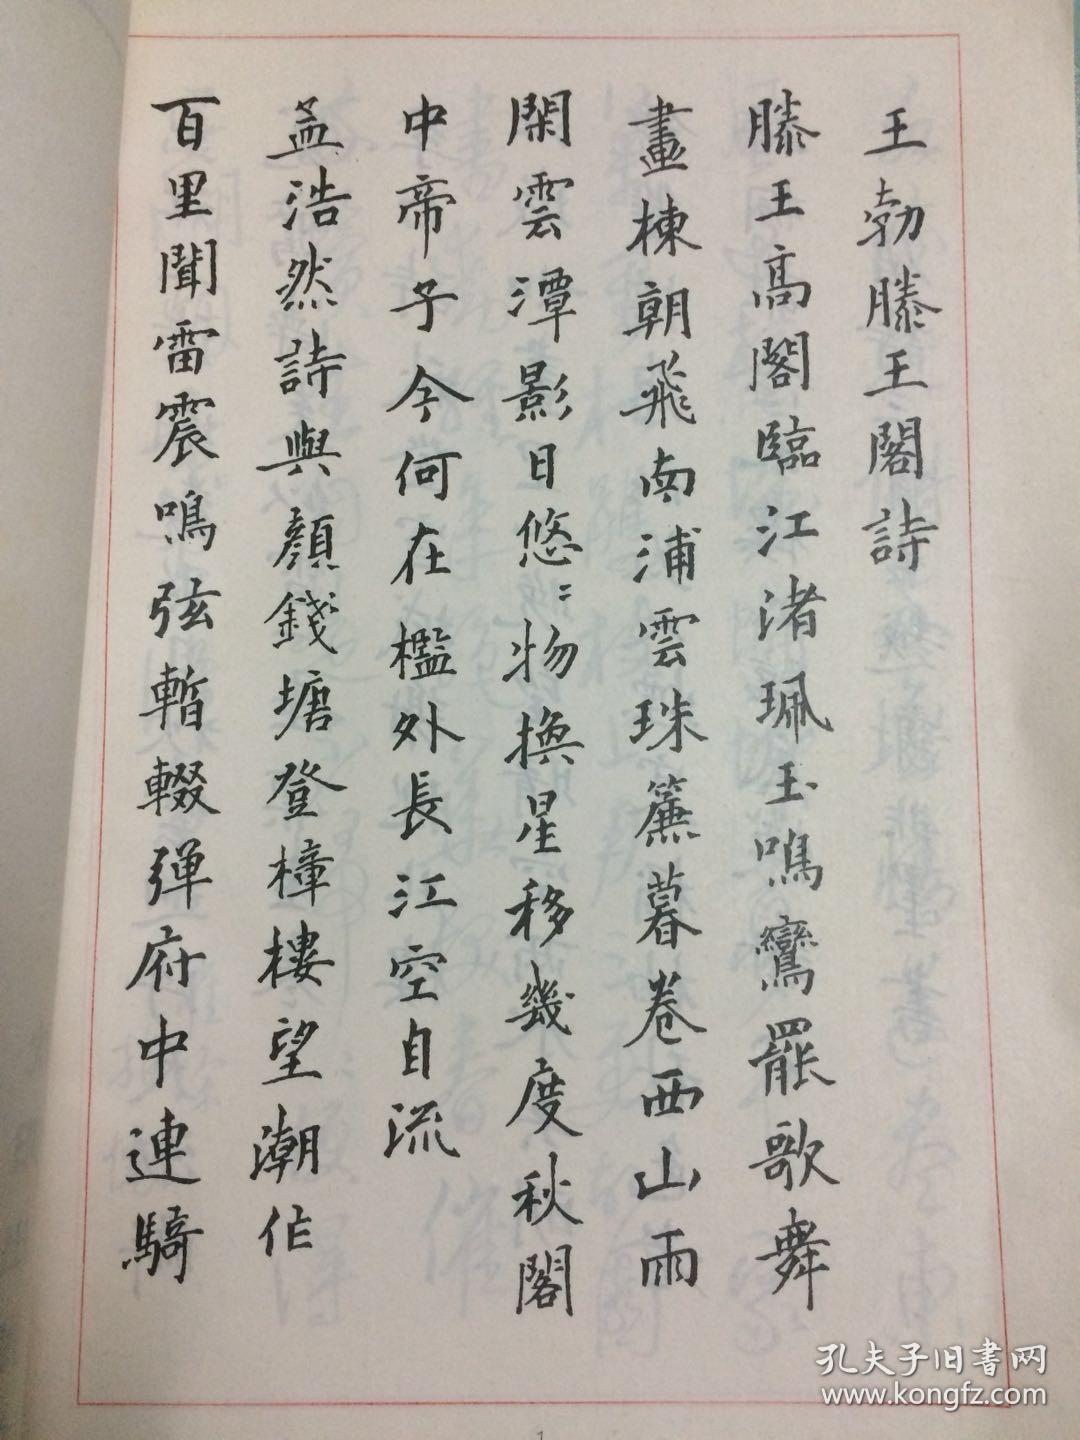 王勃滕王閣詩
滕王高閣臨江渚珮玉鳴鸞罷歌舞
畫棟朝飛南浦雲珠簾暮卷西山雨
閑雲潭影日悠〻物換星移幾度秋閣
中帝子今何在檻外長江空自流
孟浩然詩與顏錢塘登樟樓望潮作
百里聞雷震鳴弦暫輟弹府中連騎
1
孔夫子旧書网
www.kongfz.com